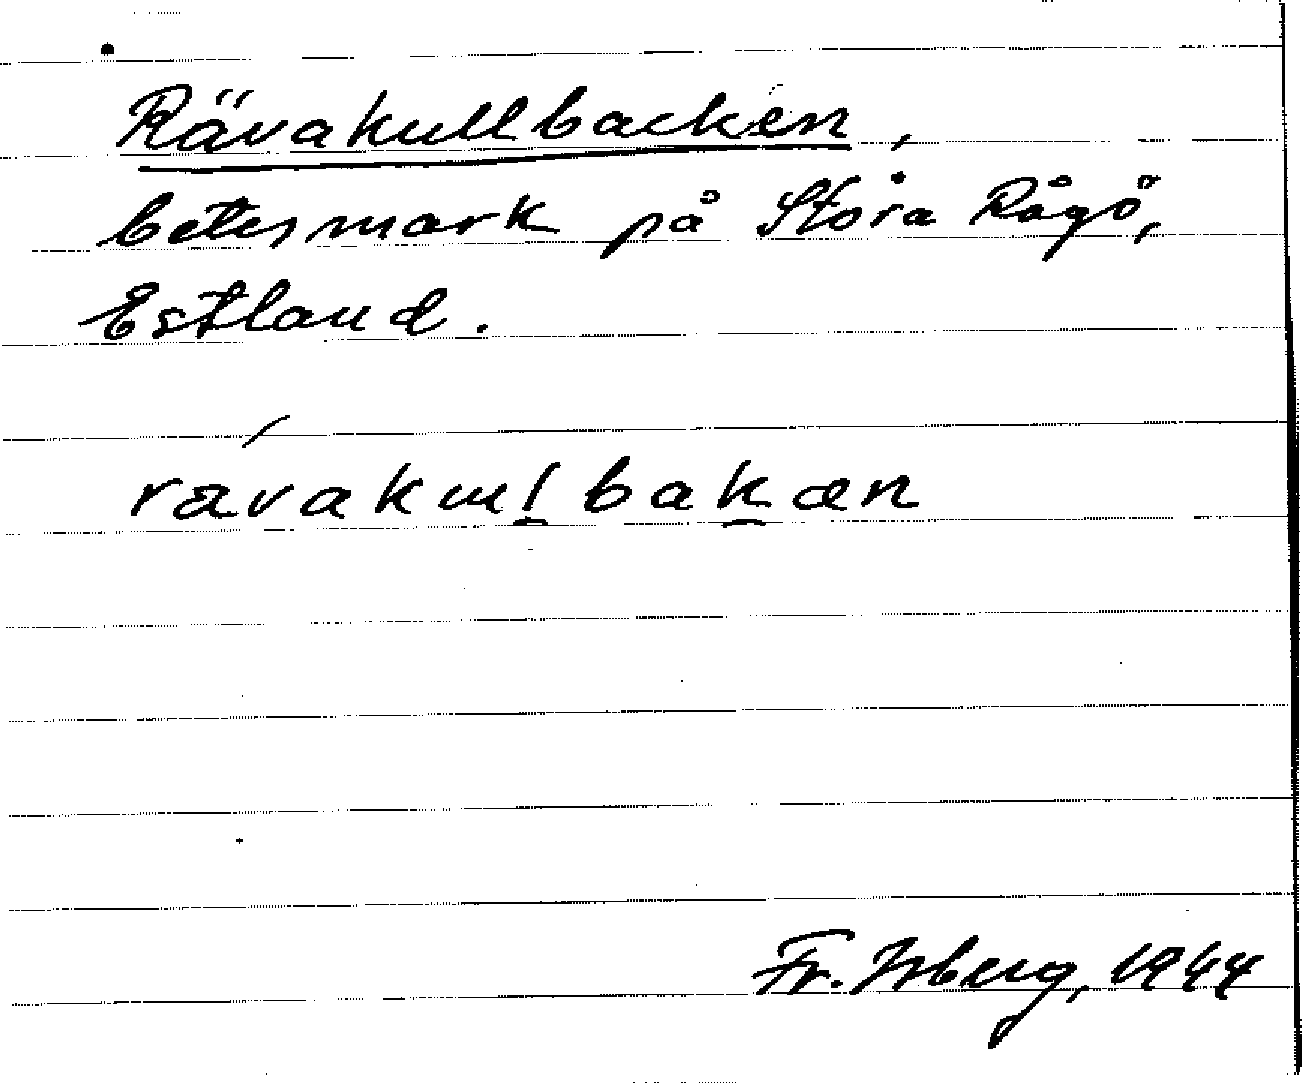 Rävakullbacken,
betesmark på Stora Rågö,
Estland.
rävakulbakæn
Fr. Isberg, 1944